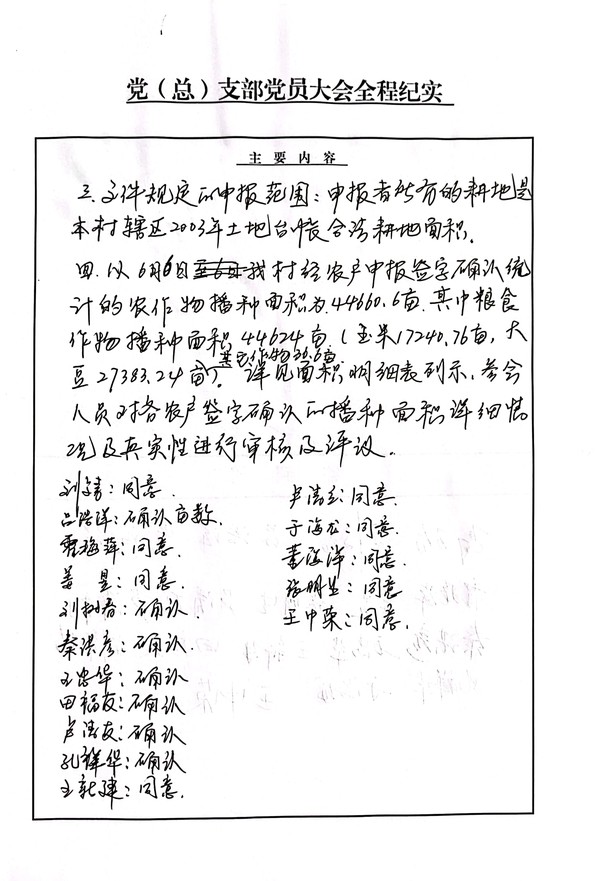 党（总）支部党员大会全程纪实
主要内容
三、文件规定的申报范围：申报者所有的耕地是
本村辖区2003年土地台帐合法耕地面积。
四、以6月6日至6日我村经农户申报签字确认统
计的农作物播种面积为44660.6亩。其中粮食
作物播种面积44624亩（玉米17240.76亩，大
豆27383.24亩）。其它作物36.6亩 详见面积明细表列示，参会
人员对各农户签字确认的播种面积详细情
况及真实性进行审核及评议。
刘靖：同意.
吕浩洋：确认亩数.
霍海萍：同意.
姜昱：同意.
刘树春：确认.
秦洪彦：确认
王忠华：确认
田福友：确认
卢清友：确认
孔祥华：确认
王新建：同意.
卢清立：同意.
于海龙：同意.
董海洋：同意.
张明生：同意
王中荣：同意.